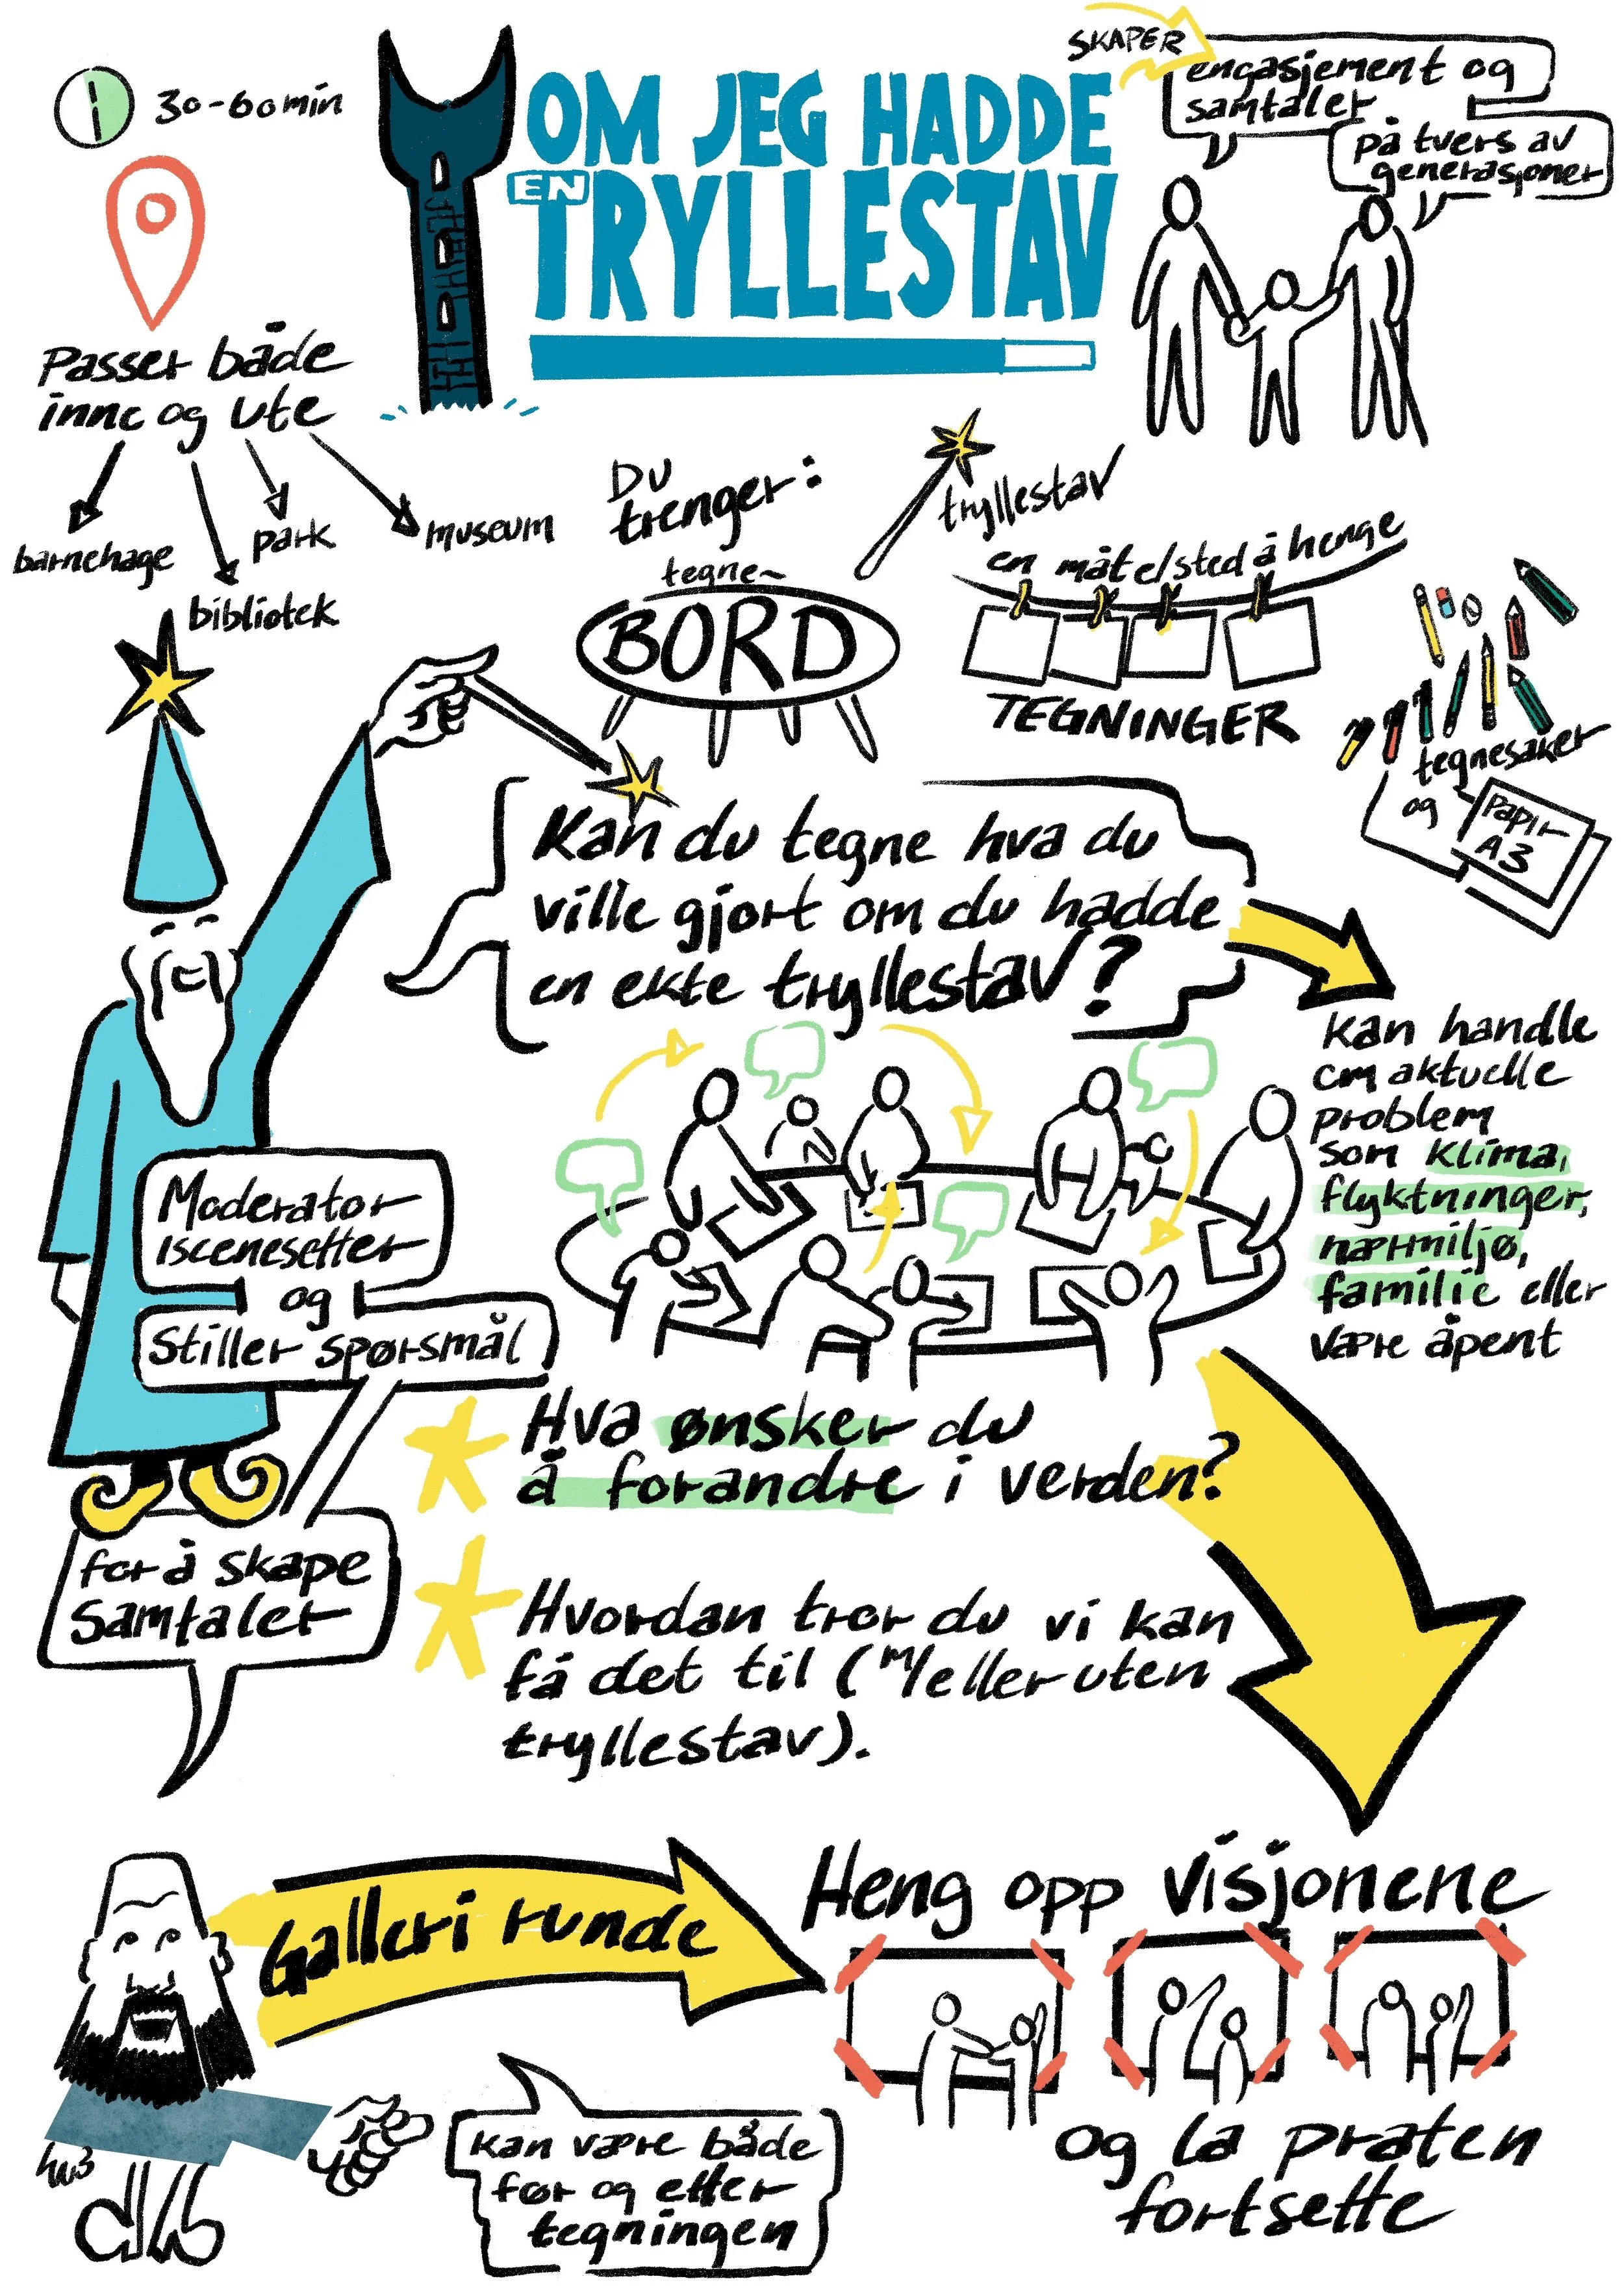 30-60min
OM JEG HADDE
EN
TRYLLESTAV
SKAPER
engasjement og
samtaler
på tvers av
generasjoner
Passer både
inne og ute
barnehage
bibliotek
park
museum
Du
trenger:
tryllestav
tegne-
BORD
en måte/sted å henge
TEGNINGER
tegnesaker
og
Papir
A3
Kan du tegne hva du
ville gjort om du hadde
en ekte tryllestav?
kan handle
om aktuelle
problem
som klima,
flyktninger,
nærmiljø,
familie eller
være åpent
Moderator
iscenesetter
og
Stiller spørsmål
for å skape
samtaler
Hva ønsker du
å forandre i verden?
Hvordan tror du vi kan
få det til (m/eller uten
tryllestav).
Galleri runde
Heng opp visjonene
og la praten
fortsette
kan være både
før og etter
tegningen